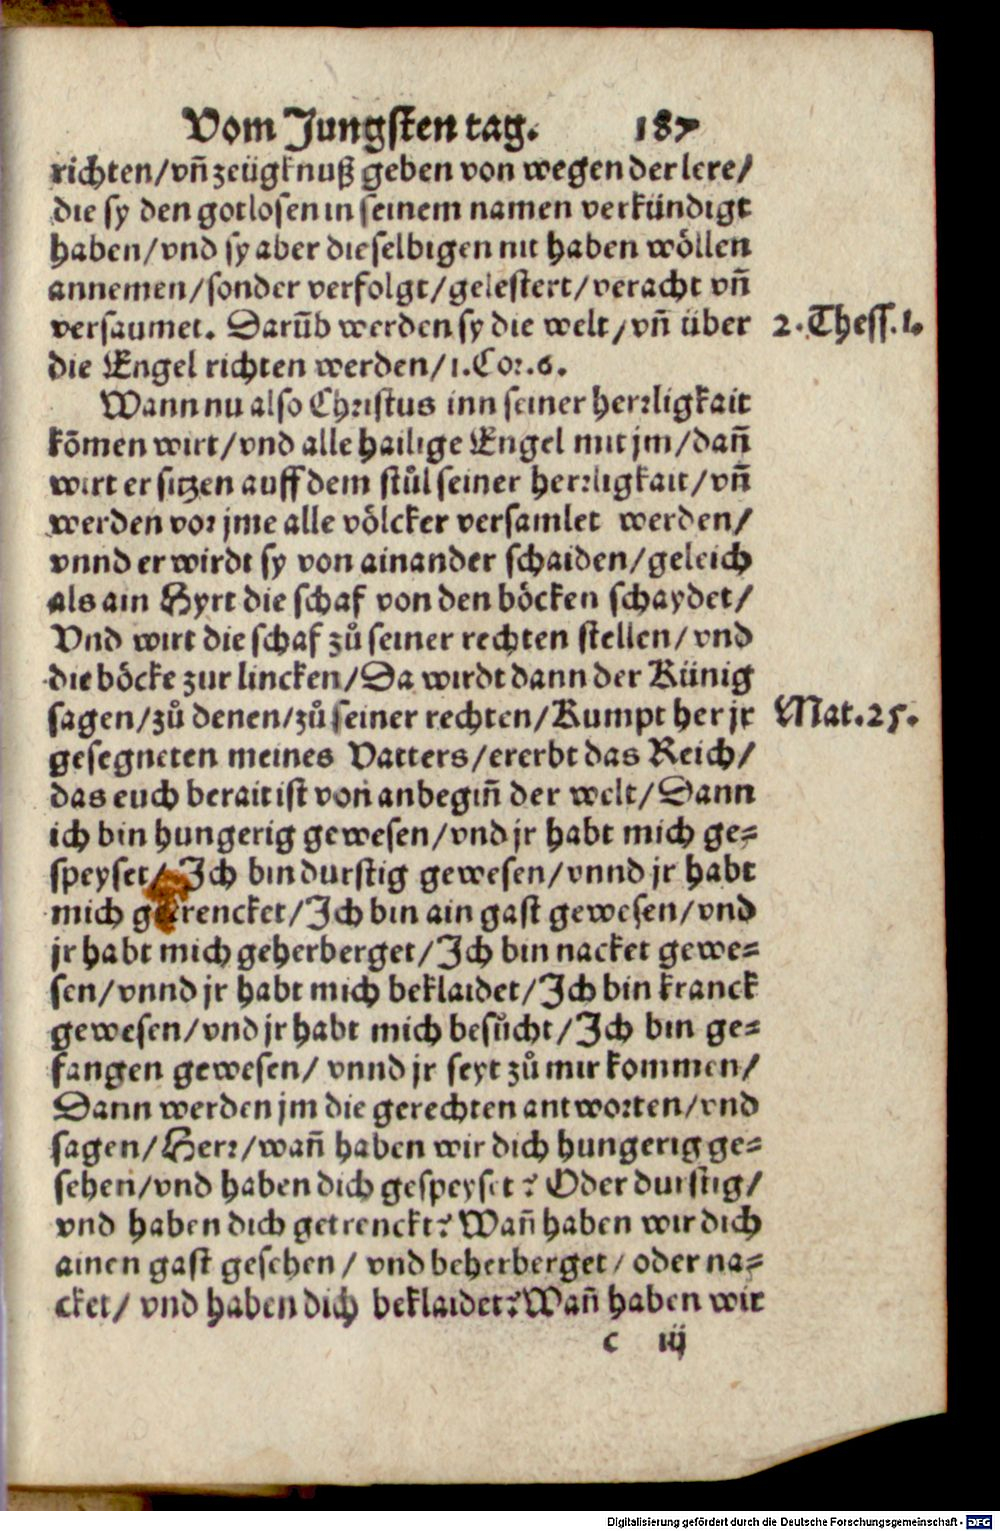 Vom Jungsten tag. 187
richten/vñ zeügknuß geben von wegen der lere/
die sy den gotlosen in seinem namen verkündigt
haben/vnd sy aber dieselbigen nit haben wöllen
annemen/sonder verfolgt/gelestert/veracht vñ
versaumet. Darūb werden sy die welt/vñ über
2.Thess.1.
die Engel richten werden/1.Cor.6.
Wann nu also Christus inn seiner herrligkait
kōmen wirt/vnd alle hailige Engel mit jm/dañ
wirt er sitzen auff dem stůl seiner herrligkait/vñ
werden vor jme alle völcker versamlet werden/
vnnd er wirdt sy von ainander schaiden/geleich
als ain Hyrt die schaf von den böcken schaydet/
Vnd wirt die schaf zů seiner rechten stellen/vnd
die böcke zur lincken/Da wirdt dann der Künig
sagen/zů denen/zů seiner rechten/Kumpt her jr
Mat.25.
gesegneten meines Vatters/ererbt das Reich/
das euch berait ist von anbegiñ der welt/Dann
ich bin hungerig gewesen/vnd jr habt mich ge=
speyset/Ich bin durstig gewesen/vnnd jr habt
mich getrencket/Ich bin ain gast gewesen/vnd
jr habt mich geherberget/Ich bin nacket gewe=
sen/vnnd jr habt mich beklaidet/Ich bin kranck
gewesen/vnd jr habt mich besůcht/Ich bin ge=
fangen gewesen/ vnnd jr seyt zů mir kommen/
Dann werden jm die gerechten antworten/vnd
sagen/Herr/wañ haben wir dich hungerig ge=
sehen/vnd haben dich gespeyset? Oder durstig/
vnd haben dich getrenckt? Wañ haben wir dich
ainen gast gesehen/ vnd beherberget/ oder na=
cket/ vnd haben dich beklaidet? Wañ haben wir
c iij
Digitalisierung gefördert durch die Deutsche Forschungsgemeinschaft - DFG